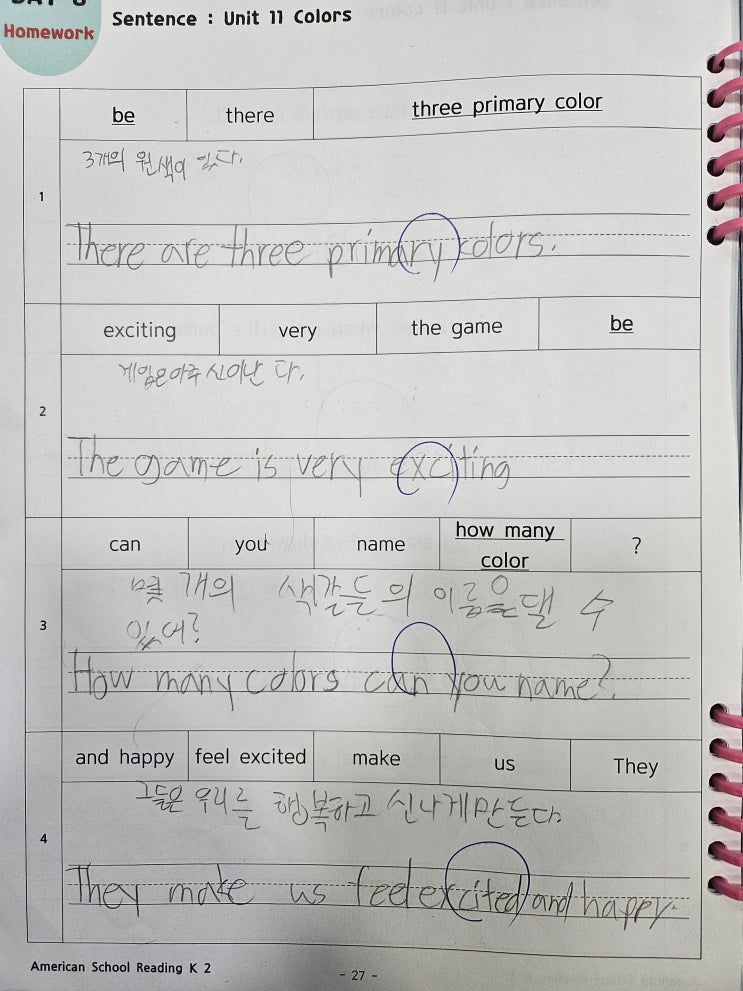 Homework
Sentence : Unit 11 Colors
be there three primary color
1
3개의 원색이 있다.
There are three primary colors.
exciting very the game be
2
게임은아주 신이난 다.
The game is very exciting
can you name how many color ?
3
몇 개의 색깔들의 이름을 댈 수
있어?
How many colors can you name?.
and happy feel excited make us They
4
그들은 우리를 행복하고 신나게만든다.
They make us feel excited and happy.
American School Reading K 2
- 27 -